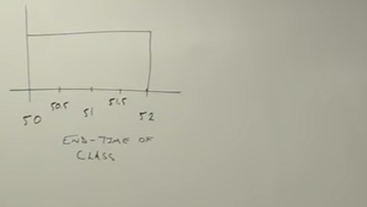 50 50.5 51 51.5 52
END-TIME OF
CLASS